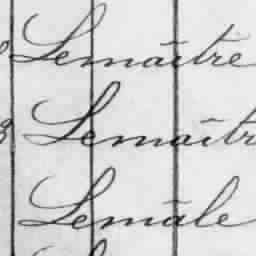 Lemaître
Lemaîtr
Lemâle